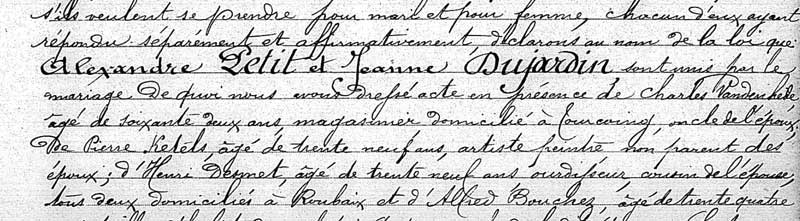 s'ils veulent se prendre pour mari et pour femme, chacun d'eux ayant
répondu séparément et affirmativement, déclarons au nom de la loi que
Alexandre Petit et Jeanne Dujardin sont unis par le
mariage De quoi nous avons dressé acte en présence de Charles
âgé de soixante deux ans magasinier domicilié à Tourcoing, oncle de l'époux,
De Pierre Ketels, âgé de trente neuf ans, artiste peintre non parent des
époux; d'Henri Desmet, âge de trente neuf ans ourdisseur cousin de l'épouse,
tous deux domiciliés à Roubaix et d'Alfred Bouchez, âgé de trente quatre